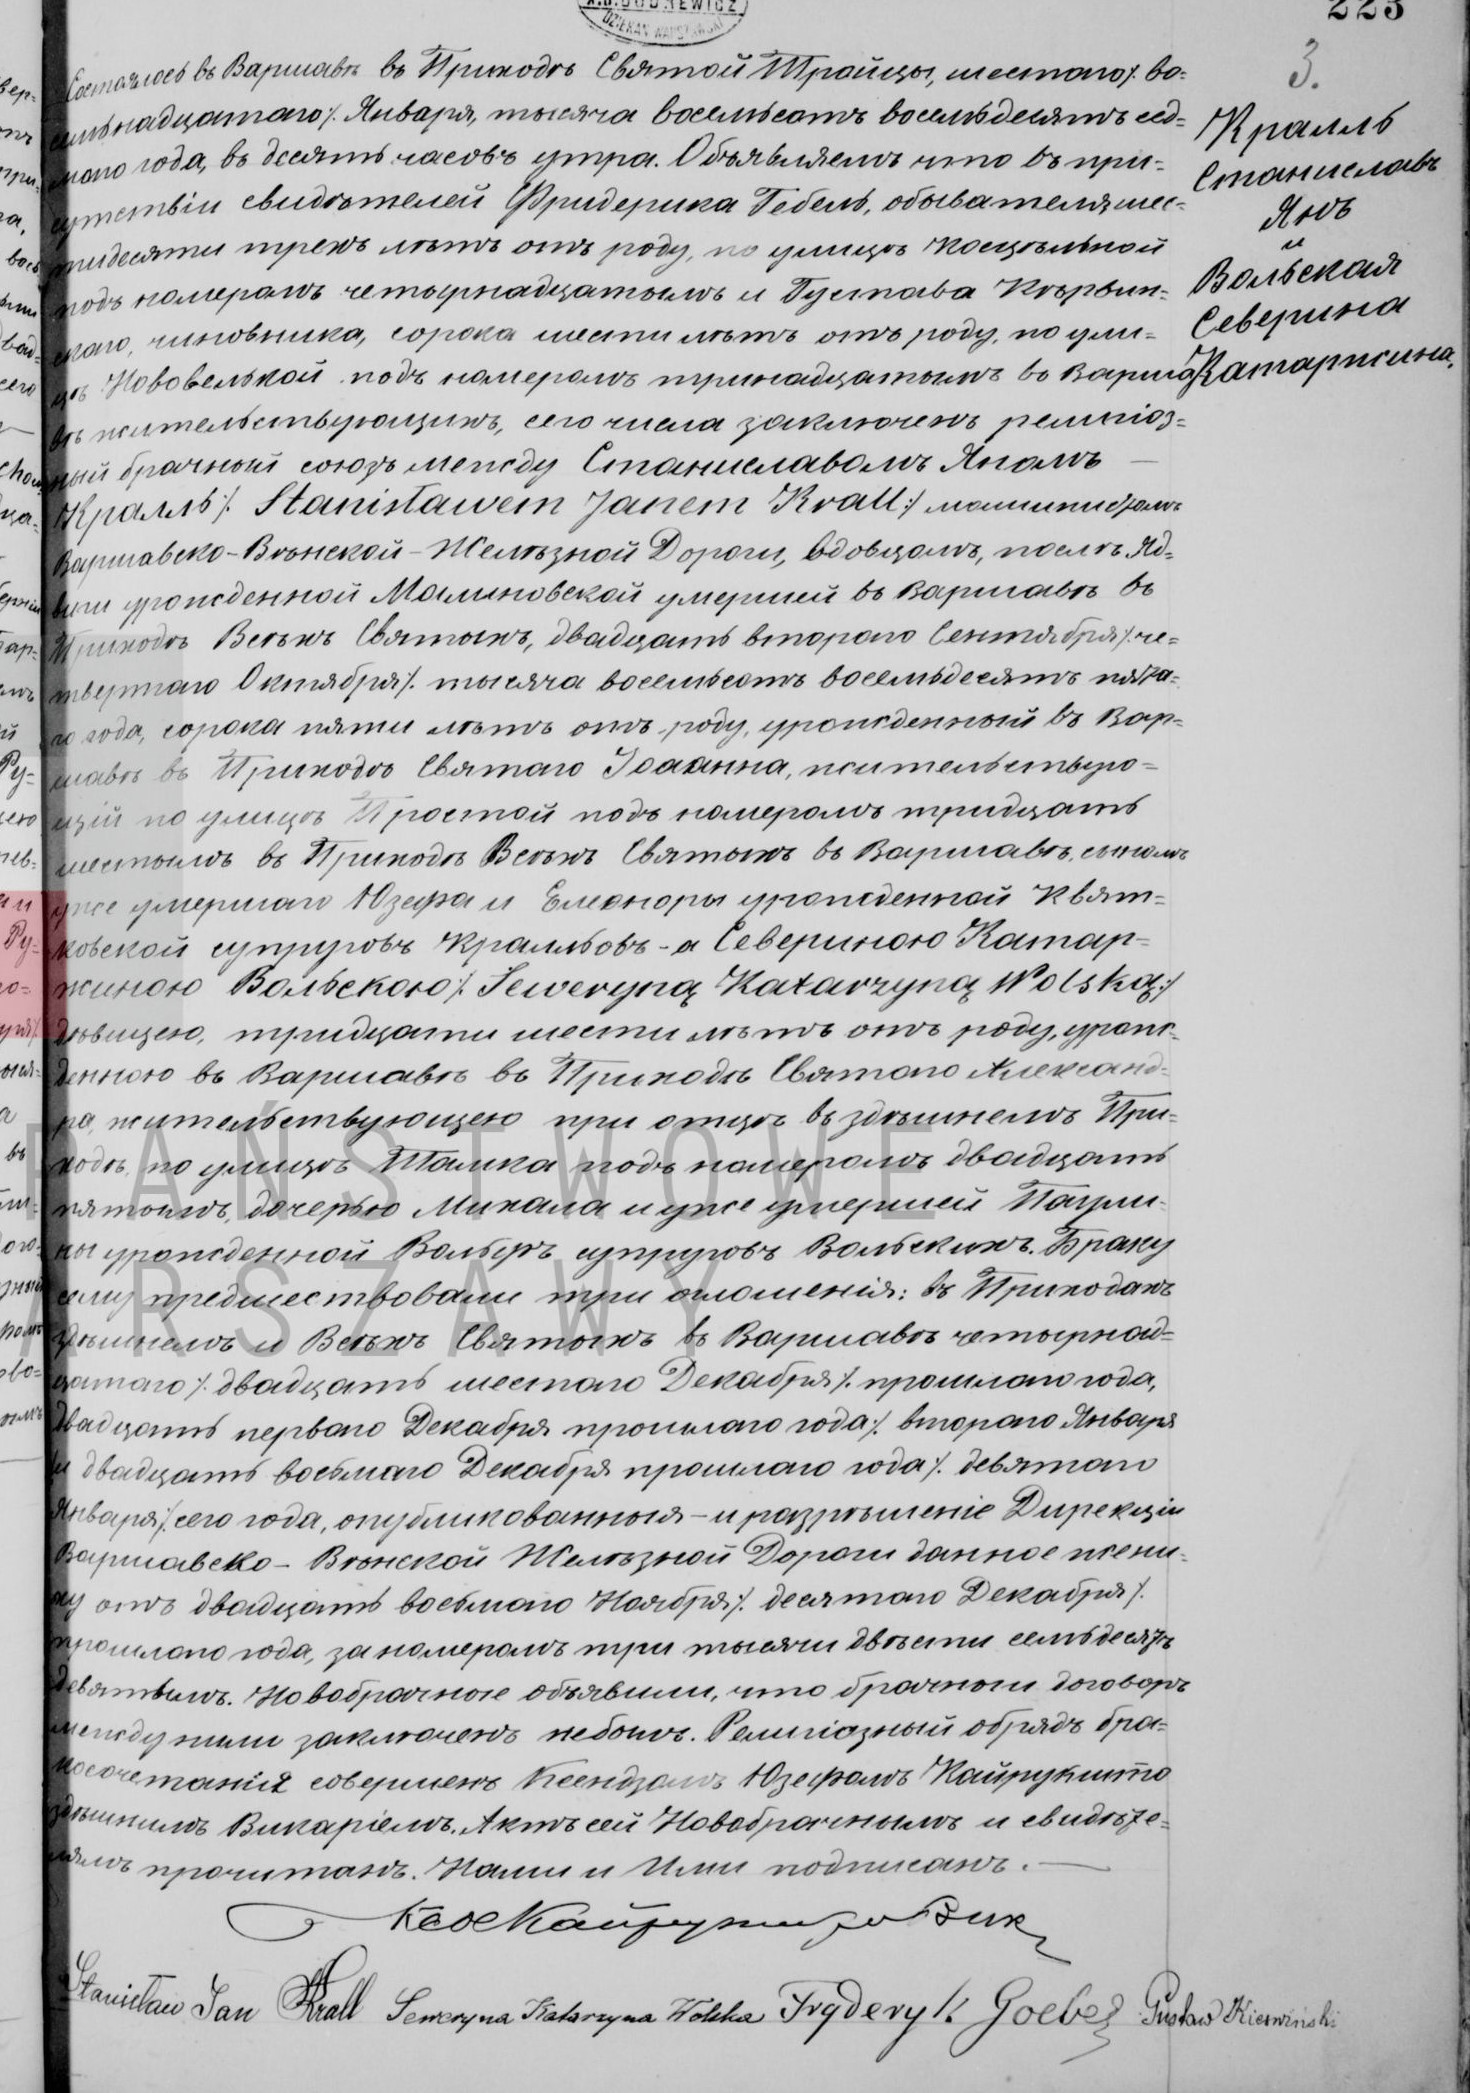 225
3.
Кралль
Станиславъ
Янъ
и
Вольская
Северина
Катаржина.
Состоялось въ Варшавѣ въ Приходѣ Святой Тройцы, шестаго /: во=
семьнадцатаго /: Января, тысяча восемьсотъ восемьдесятъ сед=
маго года, въ десять часовъ утра. Объявляемъ что въ при=
сутствіи свидѣтелей Фридерика Гебель, обывателя, шес=
тидесяти трехъ лѣтъ отъ роду, по улицѣ Косцѣльной
подъ номеромъ четырнадцатымъ и Густава Кѣрвин=
скаго, чиновника, сорока шести лѣтъ отъ роду, по ули=
цѣ Нововелькой подъ номеромъ тринадцатымъ въ Варша
вѣ жительствующихъ, сего числа заключенъ религіоз=
ный брачный союзъ между Станиславомъ Яномъ —
Кралль /: Stanisławem Janem Krall :/ машинистомъ
Варшавско-Вѣнской-Желѣзной Дороги, вдовцомъ, послѣ Яд=
виги урожденной Малиновской умершей въ Варшавѣ въ
Приходѣ Всѣхъ Святыхъ, двадцать втораго Сентября /: че=
твертаго Октября /: тысяча восемьсотъ восемьдесятъ пята=
го года, сорока пяти лѣтъ отъ роду, урожденный въ Вар=
шавѣ въ Приходѣ Святаго Іоанна, жительствую=
щій по улицѣ Простой подъ номеромъ тридцать
шестымъ въ Приходѣ Всѣхъ Святыхъ въ Варшавѣ, сыномъ
уже умершаго Юзефа и Элеоноры урожденной Квят=
ковской супруговъ Краллъовъ - а Севериною Катар=
жиною Вольскою /: Seweryną Katarzyną Wolską :/
дѣвицею, тридцати шести лѣтъ отъ роду, урож=
денною въ Варшавѣ въ Приходѣ Святаго Александ=
ра, жительствующею при отцѣ въ здѣшнемъ При=
ходѣ, по улицѣ Тамка подъ номеромъ двадцать
пятымъ, дочерью Михала и уже умершей Паули=
ны урожденной Вольфъ супруговъ Вольскихъ. Браку
сему предшествовали три оглошенія: въ Приходахъ
здѣшнемъ и Всѣхъ Святыхъ въ Варшавѣ четырнад=
цатаго /: двадцать шестаго Декабря /: прошлаго года,
двадцать перваго Декабря прошлаго года /: втораго Января
и двадцать восьмаго Декабря прошлаго года /: девятаго
Января /: сего года, опубликованныя - и разрѣшеніе Дирекціи
Варшавско - Вѣнской Желѣзной Дороги данное жени=
ху отъ двадцать восьмаго Ноября /: десятаго Декабря /:
прошлаго года, за номеромъ три тысячи двѣсти семьдесятъ
девятымъ. Новобрачные объявили, что брачный договоръ
между ними заключенъ небылъ. Религіозный обрядъ бра=
косочетанія совершенъ Ксендзомъ Юзефомъ Кайрукшто
здѣшнимъ Викаріемъ. Актъ сей Новобрачнымъ и свидѣте=
лямъ прочитанъ. Нами и Ими подписанъ. —
Stanisław Jan Krall Seweryna Katarzyna Wolska Fryderyk Goebel Gustaw Kierwiński
PAŃSTWOWE
ARSZAWY